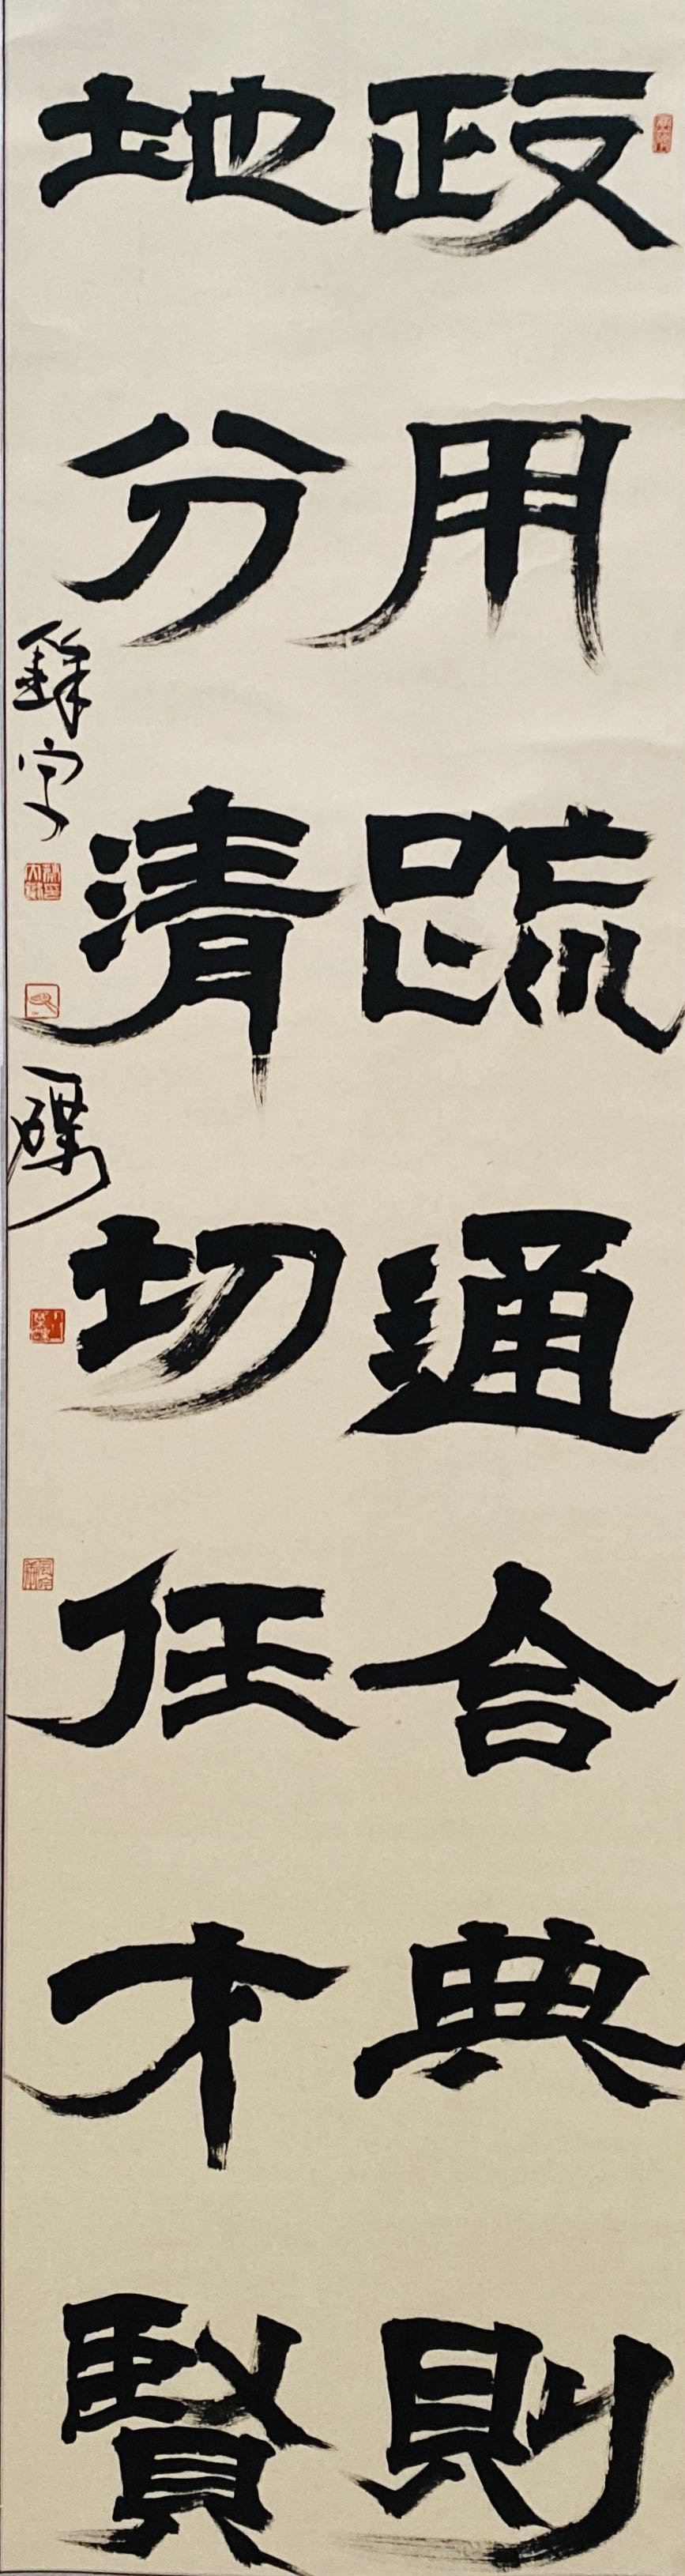 政用疏通合典則
地分清切任才賢
錄字